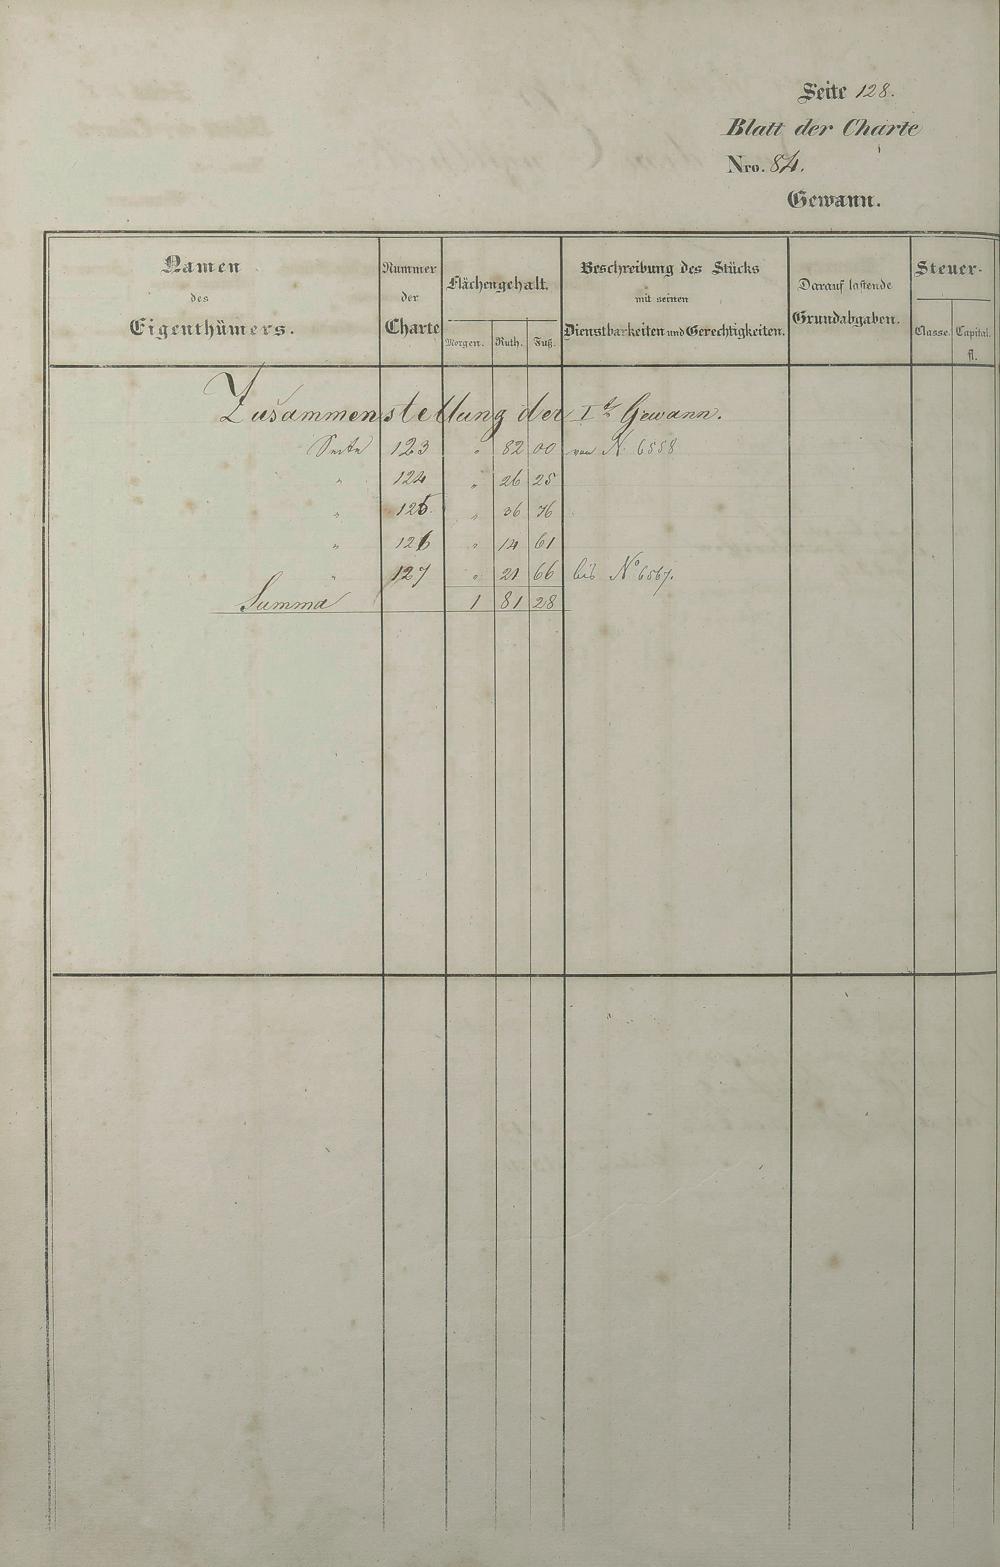 Seite 128.
Blatt der Charte
Nro. 84.
Gewann.
Namen des Eigenthümers.
Nummer der Charte
Flächengehalt.
Morgen. Ruth. Fuß.
Beschreibung des Stücks mit seinen Dienstbarkeiten und Gerechtigkeiten.
Darauf lastende Grundabgaben.
Steuer-
Classe. Capital. fl.
Zusammenstellung der I. Gewann.
Seite 123 " 82 00 von N. 6558
" 124 " 26 25
" 125 " 36 76
" 126 " 14 61
" 127 " 21 66 bis No 6567.
Summa 1 81 28